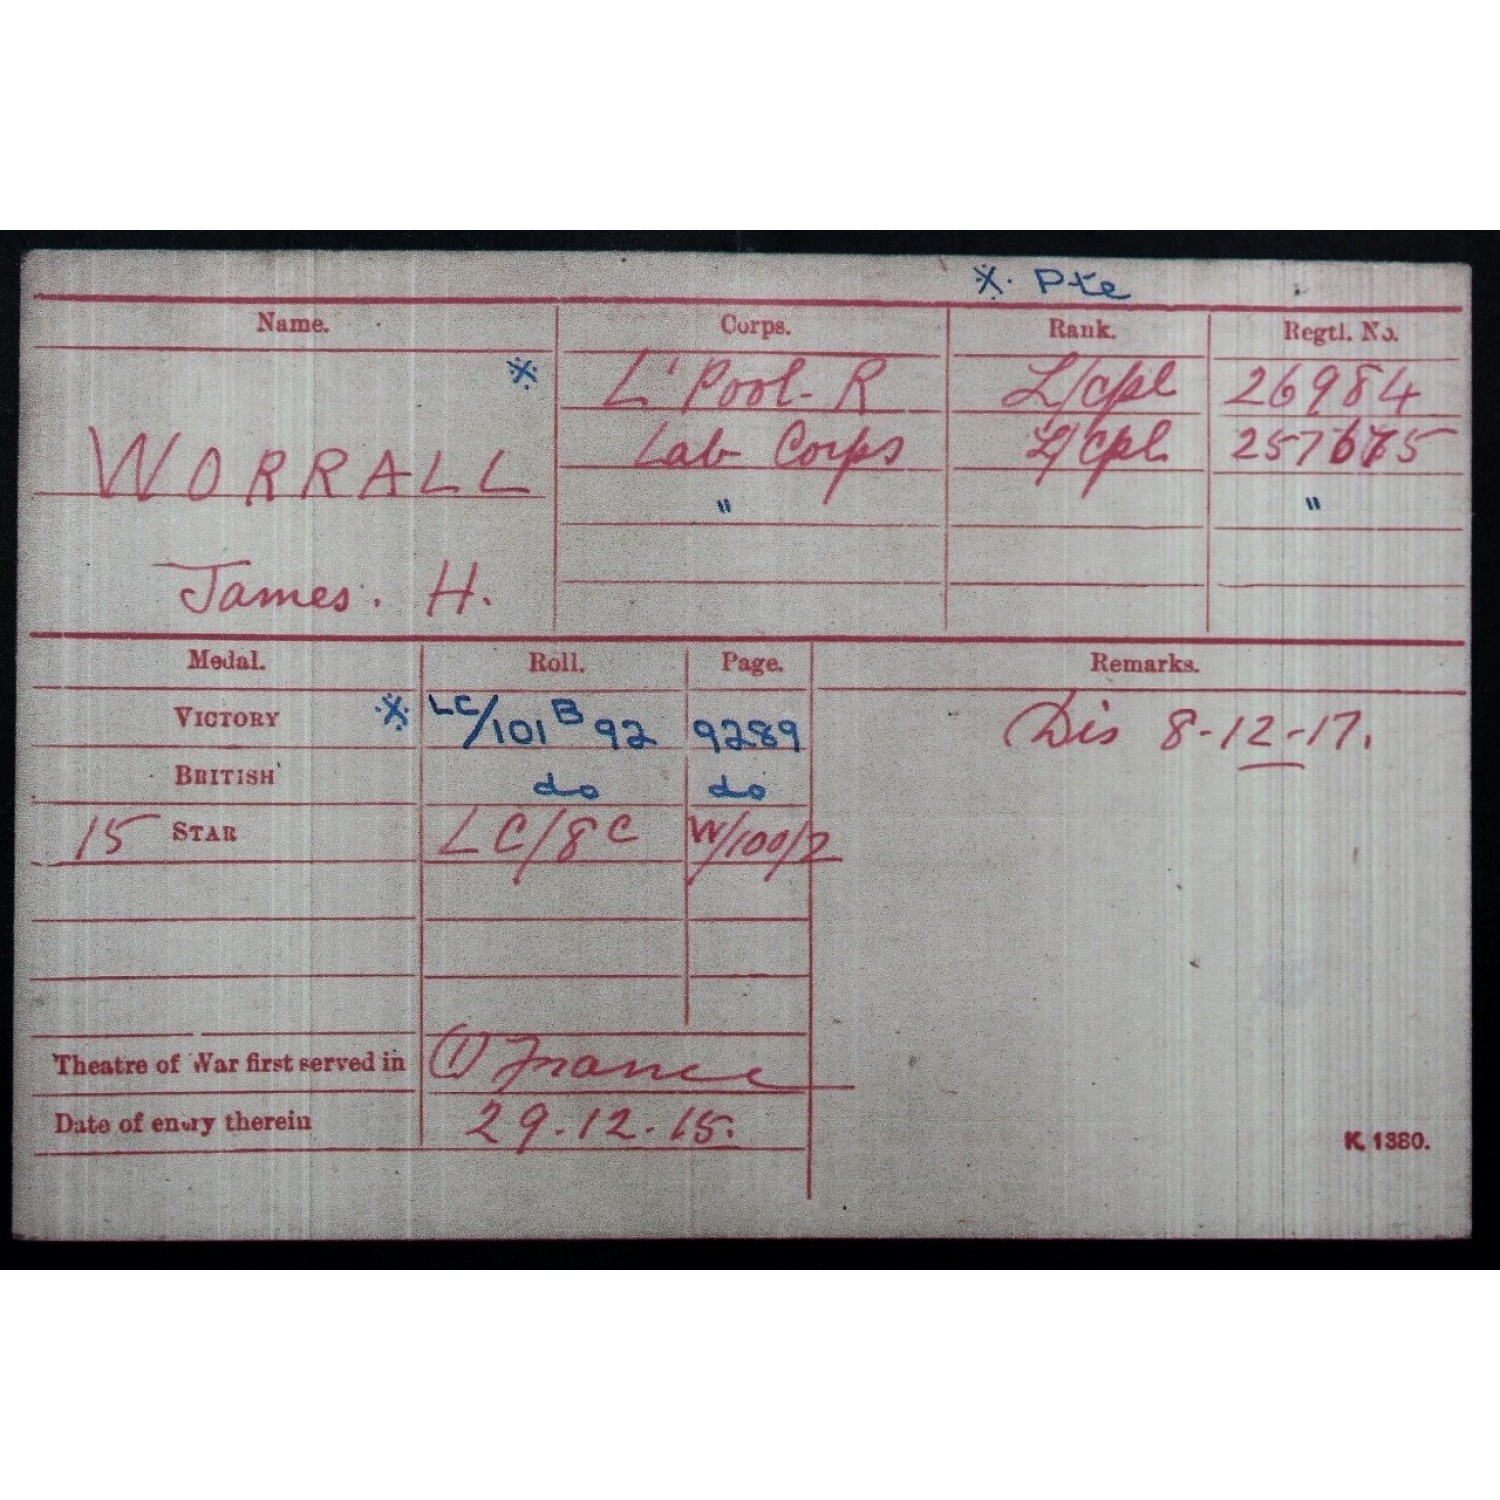 ※. Pte
Name. Corps. Rank. Regtl. No.
※ L'Pool- R L/cpl 26984
WORRALL Lab Corps L/cpl
" "
James. H.
Medal. Roll. Page. Remarks.
VICTORY ※ LC/101 B 92 9289 Dis 8-12-17.
BRITISH do do
15 STAR LC/8C W/100/2
Theatre of War first served in (1) France
Date of entry therein 29.12.15.
K. 1380.